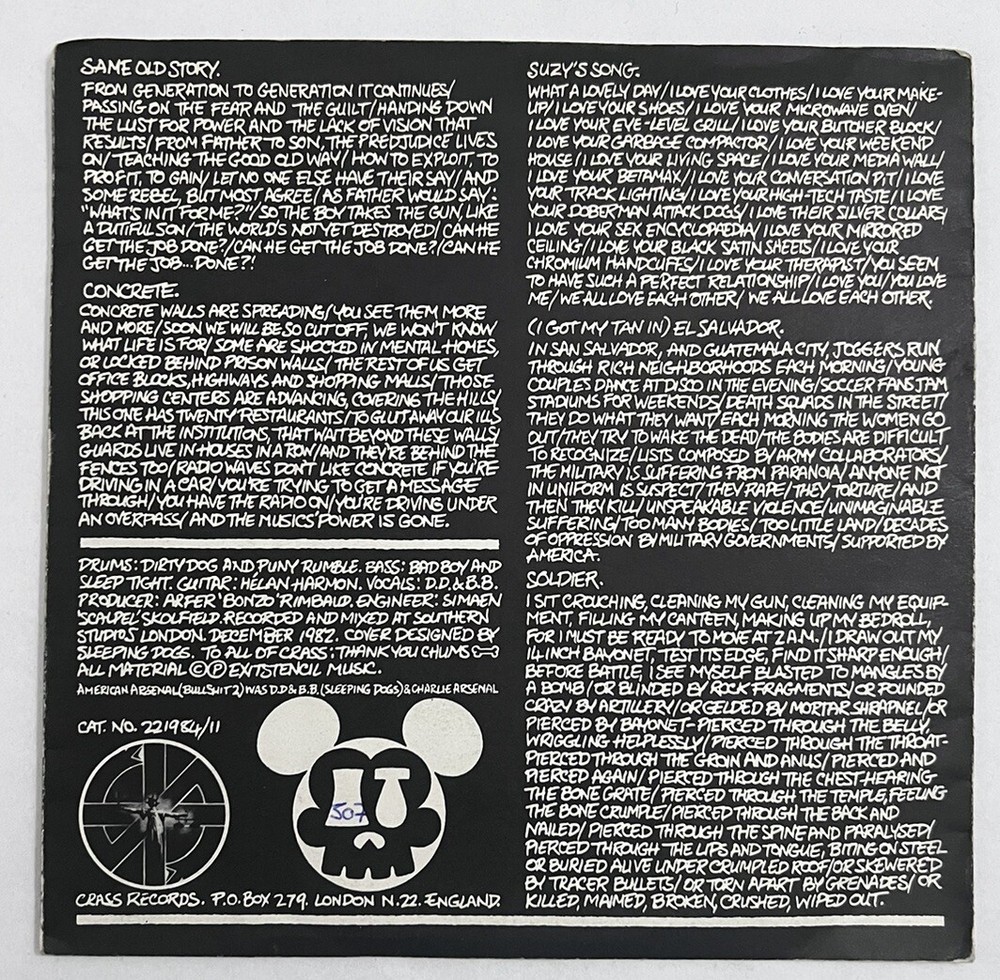 SAME OLD STORY.
FROM GENERATION TO GENERATION IT CONTINUES/
PASSING ON THE FEAR AND THE GUILT/HANDING DOWN
THE LUST FOR POWER AND THE LACK OF VISION THAT
RESULTS/FROM FATHER TO SON, THE PREDJUDICE LIVES
ON/TEACHING THE GOOD OLD WAY/HOW TO EXPLOIT, TO
PROFIT, TO GAIN/LET NO ONE ELSE HAVE THEIR SAY/AND
SOME REBEL, BUT MOST AGREE/AS FATHER WOULD SAY:
"WHAT'S IN IT FOR ME?"/SO THE BOY TAKES THE GUN, LIKE
A DUTIFUL SON/THE WORLD'S NOT YET DESTROYED/CAN HE
GET THE JOB DONE?/CAN HE GET THE JOB DONE?/CAN HE
GET THE JOB...DONE?!
CONCRETE.
CONCRETE WALLS ARE SPREADING/YOU SEE THEM MORE
AND MORE/SOON WE WILL BE SO CUT OFF, WE WON'T KNOW
WHAT LIFE IS FOR/SOME ARE SHOCKED IN MENTAL HOMES,
OR LOCKED BEHIND PRISON WALLS/THE REST OF US GET
OFFICE BLOCKS, HIGHWAYS AND SHOPPING MALLS/THOSE
SHOPPING CENTERS ARE ADVANCING, COVERING THE HILLS/
THIS ONE HAS TWENTY RESTAURANTS/TO GLUT AWAY OUR ILLS
BACK AT THE INSTITUTIONS, THAT WAIT BEYOND THESE WALLS/
GUARDS LIVE IN HOUSES IN A ROW/AND THEY'RE BEHIND THE
FENCES TOO/RADIO WAVES DON'T LIKE CONCRETE IF YOU'RE
DRIVING IN A CAR/YOU'RE TRYING TO GET A MESSAGE
THROUGH/YOU HAVE THE RADIO ON/YOU'RE DRIVING UNDER
AN OVERPASS/AND THE MUSICS' POWER IS GONE.
DRUMS: DIRTY DOG AND PUNY RUMBLE. BASS: BAD BOY AND
SLEEP TIGHT. GUITAR: HELAN HARMON. VOCALS: D.D. & B.B.
PRODUCER: ARFER 'BONZO' RIMBALD. ENGINEER: SIMAEN
SCALPEL' SKOLFIELD. RECORDED AND MIXED AT SOUTHERN
STUDIOS LONDON. DECEMBER 1982. COVER DESIGNED BY
SLEEPING DOGS. TO ALL OF CRASS: THANK YOU CHUMS
ALL MATERIAL ©℗ EXITSTENCIL MUSIC.
AMERICAN ARSENAL (BULLSHIT 2) WAS D.D & B.B. (SLEEPING DOGS) & CHARLIE ARSENAL
CAT. NO. 221984/11
507
CRASS RECORDS. P.O. BOX 279. LONDON N.22. ENGLAND.
SUZY'S SONG.
WHAT A LOVELY DAY/I LOVE YOUR CLOTHES/I LOVE YOUR MAKE-
UP/I LOVE YOUR SHOES/I LOVE YOUR MICROWAVE OVEN/
I LOVE YOUR EYE-LEVEL GRILL/I LOVE YOUR BUTCHER BLOCK/
I LOVE YOUR GARBAGE COMPACTOR/I LOVE YOUR WEEKEND
HOUSE/I LOVE YOUR LIVING SPACE/I LOVE YOUR MEDIA WALL/
I LOVE YOUR BETAMAX/I LOVE YOUR CONVERSATION PIT/I LOVE
YOUR TRACK LIGHTING/I LOVE YOUR HIGH-TECH TASTE/I LOVE
YOUR DOBERMAN ATTACK DOGS/I LOVE THEIR SILVER COLLARS/
I LOVE YOUR SEX ENCYCLOPAEDIA/I LOVE YOUR MIRRORED
CEILING/I LOVE YOUR BLACK SATIN SHEETS/I LOVE YOUR
CHROMIUM HANDCUFFS/I LOVE YOUR THERAPIST/YOU SEEM
TO HAVE SUCH A PERFECT RELATIONSHIP/I LOVE YOU/YOU LOVE
ME/WE ALL LOVE EACH OTHER/WE ALL LOVE EACH OTHER.
(I GOT MY TAN IN) EL SALVADOR.
IN SAN SALVADOR, AND GUATEMALA CITY, JOGGERS RUN
THROUGH RICH NEIGHBORHOODS EACH MORNING/YOUNG
COUPLES DANCE AT DISCO IN THE EVENING/SOCCER FANS JAM
STADIUMS FOR WEEKENDS/DEATH SQUADS IN THE STREET/
THEY DO WHAT THEY WANT/EACH MORNING THE WOMEN GO
OUT/THEY TRY TO WAKE THE DEAD/THE BODIES ARE DIFFICULT
TO RECOGNIZE/LISTS COMPOSED BY ARMY COLLABORATORS/
THE MILITARY IS SUFFERING FROM PARANOIA/ANYONE NOT
IN UNIFORM IS SUSPECT/THEY RAPE/THEY TORTURE/AND
THEN THEY KILL/UNSPEAKABLE VIOLENCE/UNIMAGINABLE
SUFFERING/TOO MANY BODIES/TOO LITTLE LAND/DECADES
OF OPPRESSION BY MILITARY GOVERNMENTS/SUPPORTED BY
AMERICA.
SOLDIER.
I SIT CROUCHING, CLEANING MY GUN, CLEANING MY EQUIP-
MENT, FILLING MY CANTEEN, MAKING UP MY BEDROLL,
FOR I MUST BE READY TO MOVE AT 2 A.M./I DRAW OUT MY
14 INCH BAYONET, TEST ITS EDGE, FIND IT SHARP ENOUGH/
BEFORE BATTLE, I SEE MYSELF BLASTED TO MANGLES BY
A BOMB/OR BLINDED BY ROCK FRAGMENTS/OR POUNDED
CRAZY BY ARTILLERY/OR GELDED BY MORTAR SHRAPNEL/OR
PIERCED BY BAYONET-PIERCED THROUGH THE BELLY,
WRIGGLING HELPLESSLY/PIERCED THROUGH THE THROAT-
PIERCED THROUGH THE GROIN AND ANUS/PIERCED AND
PIERCED AGAIN/PIERCED THROUGH THE CHEST-HEARING
THE BONE GRATE/PIERCED THROUGH THE TEMPLE, FEELING
THE BONE CRUMPLE/PIERCED THROUGH THE BACK AND
NAILED/PIERCED THROUGH THE SPINE AND PARALYSED/
PIERCED THROUGH THE LIPS AND TONGUE, BITING ON STEEL
OR BURIED ALIVE UNDER CRUMPLED ROOF/OR SKEWERED
BY TRACER BULLETS/OR TORN APART BY GRENADES/OR
KILLED, MAIMED, BROKEN, CRUSHED, WIPED OUT.